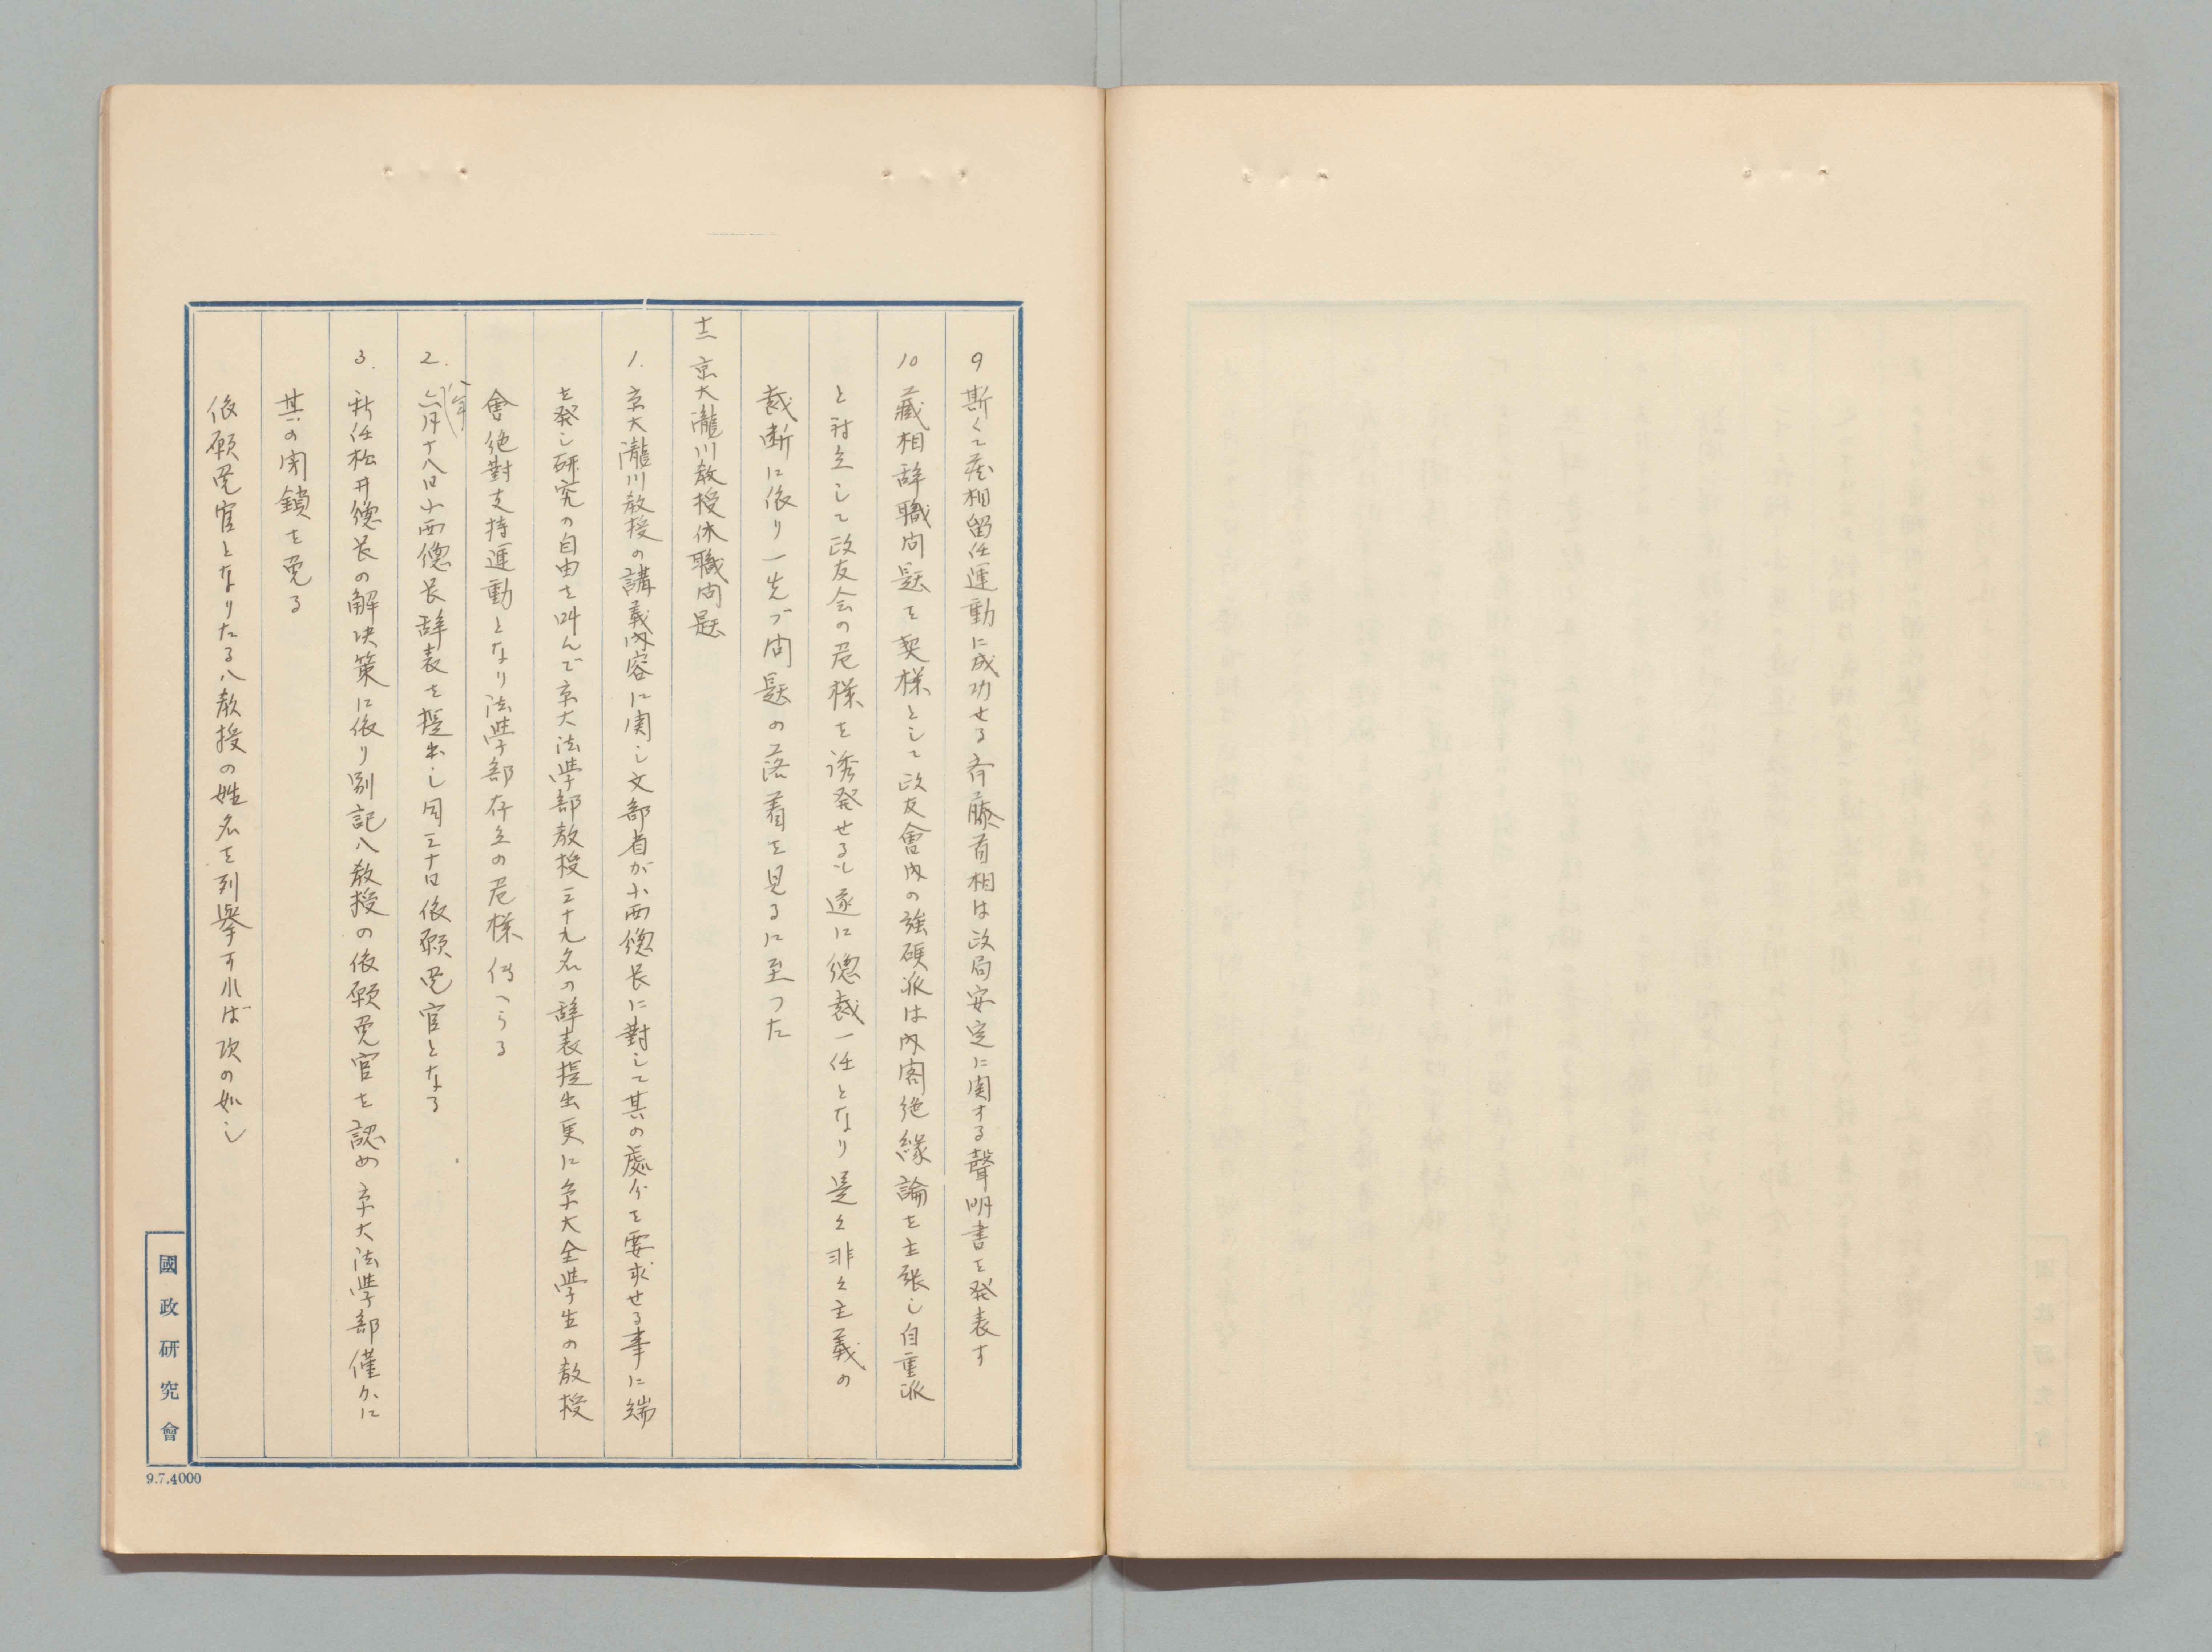 9 斯くて蔵相留任運動に成功せる斉藤首相は政局安定に関する聲明書を発表す
10 蔵相辞職问題を契機として政友會内の強硬派は内閣絶縁論を主張し自重派
と対立して政友会の危機を誘発せるも遂に總裁一任となり是々非々主義の
裁断に依り一先づ问題の落着を見るに至つた
十二 京大瀧川教授休職问題
1. 京大瀧川教授の講義内容に関し文部省が小西總長に對して其の處分を要求せる事に端
を発し研究の自由を叫んで京大法學部教授三十九名の辞表提出更に京大全學生の教授
會絶對支持運動となり法學部存立の危機傳へらる
2. 八年六月十八日小西總長辞表を提出し同三十日依願免官となる
3. 新任松井總長の解決策に依り別記八教授の依願免官を認め京大法學部僅かに
其の閉鎖を免る
依願免官となりたる八教授の姓名を列挙すれば次の如し
國政研究會
9.7.4000